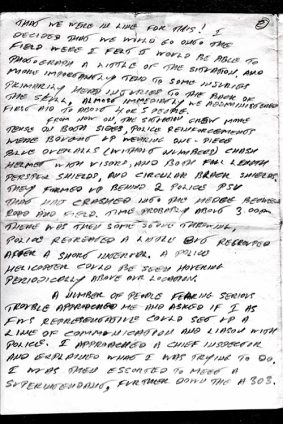 ②
THAT WE WERE IN LINE FOR THIS! I
DECIDED THAT WE WOULD GO ONTO THE
FIELD WERE I FELT I WOULD BE ABLE TO
PHOTOGRAPH A LITTLE OF THE SITUATION, AND
MORE IMPORTANTLY TEND TO SOME INJURIES
PRIMARILY HEAD INJURIES TO THE BACK OF
THE SKULL, ALMOST IMMEDIATELY WE ADMINISTERED
FIRST AID TO ABOUT 4 OR 5 MORE.
FROM NOW ON, THE SITUATION GREW MORE
TENSE ON BOTH SIDES, POLICE REINFORCEMENTS
WERE BROUGHT UP WEARING ONE-PIECE
BLUE OVERALLS (WITHOUT NUMBERS) CRASH
HELMET WITH VISORS, AND BOTH FULL LENGTH
PERSPEX SHIELDS, AND CIRCULAR BLACK SHIELDS.
THEY FORMED UP BEHIND 2 POLICE PSV
THAT HAD CRASHED INTO THE HEDGE BETWEEN
ROAD AND FIELD. TIME PROBABLY ABOUT 3.00pm
THERE WAS THEN SOME STONE THROWING,
POLICE RETREATED A LITTLE BUT REGROUPED
AFTER A SHORT INTERVAL, A POLICE
HELICOPTER COULD BE SEEN HOVERING
PERIODICALLY ABOVE OUR LOCATION.
A NUMBER OF PEOPLE FEARING SERIOUS
TROUBLE APPROACHED ME AND ASKED IF I AS
REPRESENTATIVE COULD SET UP A
LINE OF COMMUNICATION AND LIASON WITH
POLICE. I APPROACHED A CHIEF INSPECTOR
AND EXPLAINED WHAT I WAS TRYING TO DO.
I WAS THEN ESCORTED TO MEET A
SUPERINTENDANT, FURTHER DOWN THE A303.